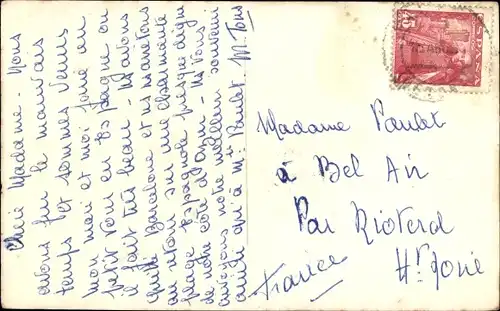 Chère Madame - Nous
avons fui le mauvais
temps et sommes venus
mon mari et moi faire un
petit tour en Espagne où
il fait très beau - Ns avons
quitté Barcelone et ns arrêtons
au retour sur une charmante
plage Espagnole presque digne
de notre côte d'Azur - Ns vous
envoyons notre meilleur souvenir
ainsi qu'à Mr Paulet M. Tous
ESPAÑA
Madame Paulet
à Bel Air
Par Riotord
Hte Loire
France